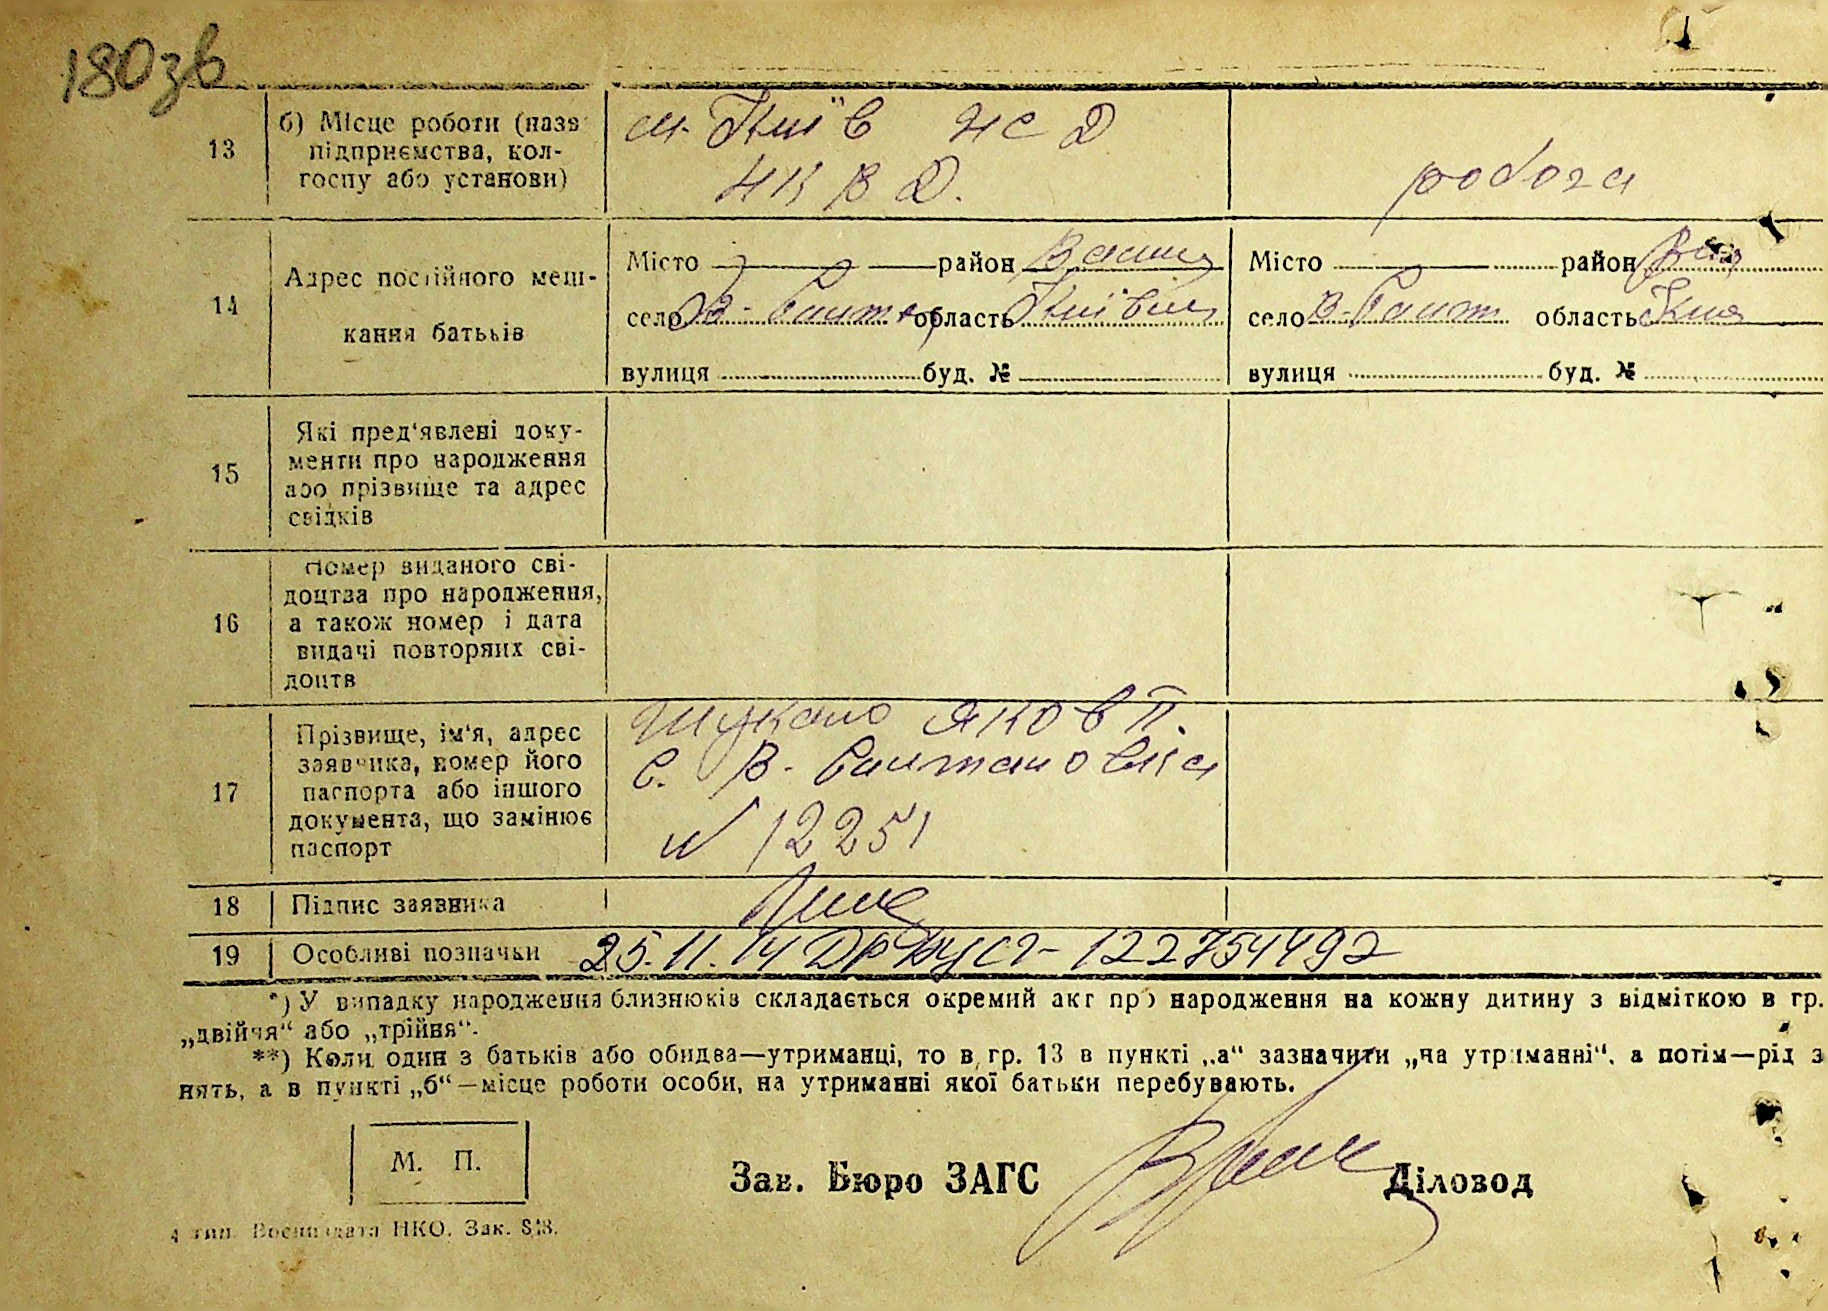 180зв
13 б) Місце роботи (назв підприємства, колгоспу або установи)
м. Київ НСД
НКВД.
робоча
14 Адрес постійного мешкання батьків
Місто район
село В- область
вулиця буд. №
Місто район
село область
вулиця буд. №
15 Які пред'явлені документи про народження або прізвище та адрес свідків
16 Номер виданого свідоцтва про народження, а також номер і дата видачі повторних свідоцтв
17 Прізвище, ім'я, адрес заявника, номер його паспорта або іншого документа, що замінює паспорт
Яков П.
с. В- Салтановка
№ 12251
18 Підпис заявника
19 Особливі позначки 25.11.14 122754492
*) У випадку народження близнюків складається окремий акт про народження на кожну дитину з відміткою в гр.
„двійня“ або „трійня“.
**) Коли один з батьків або обидва—утриманці, то в гр. 13 в пункті „а“ зазначити „на утриманні“, а потім—рід з
нять, а в пункті „б“—місце роботи особи, на утриманні якої батьки перебувають.
М. П.
Зав. Бюро ЗАГС Діловод
НКО. Зак.